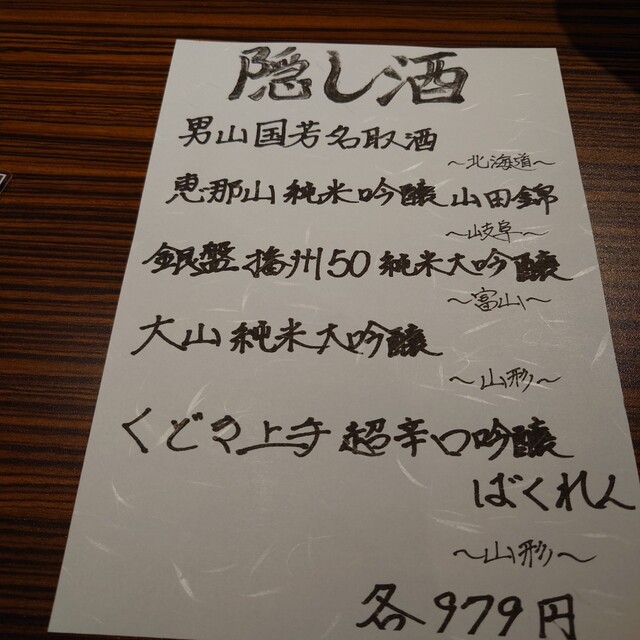 隠し酒
男山国芳名取酒
～北海道～
恵那山 純米吟醸 山田錦
～岐阜～
銀盤 播州50 純米大吟醸
～富山～
大山 純米大吟醸
～山形～
くどき上手 超辛口吟醸
ばくれん
～山形～
各979円